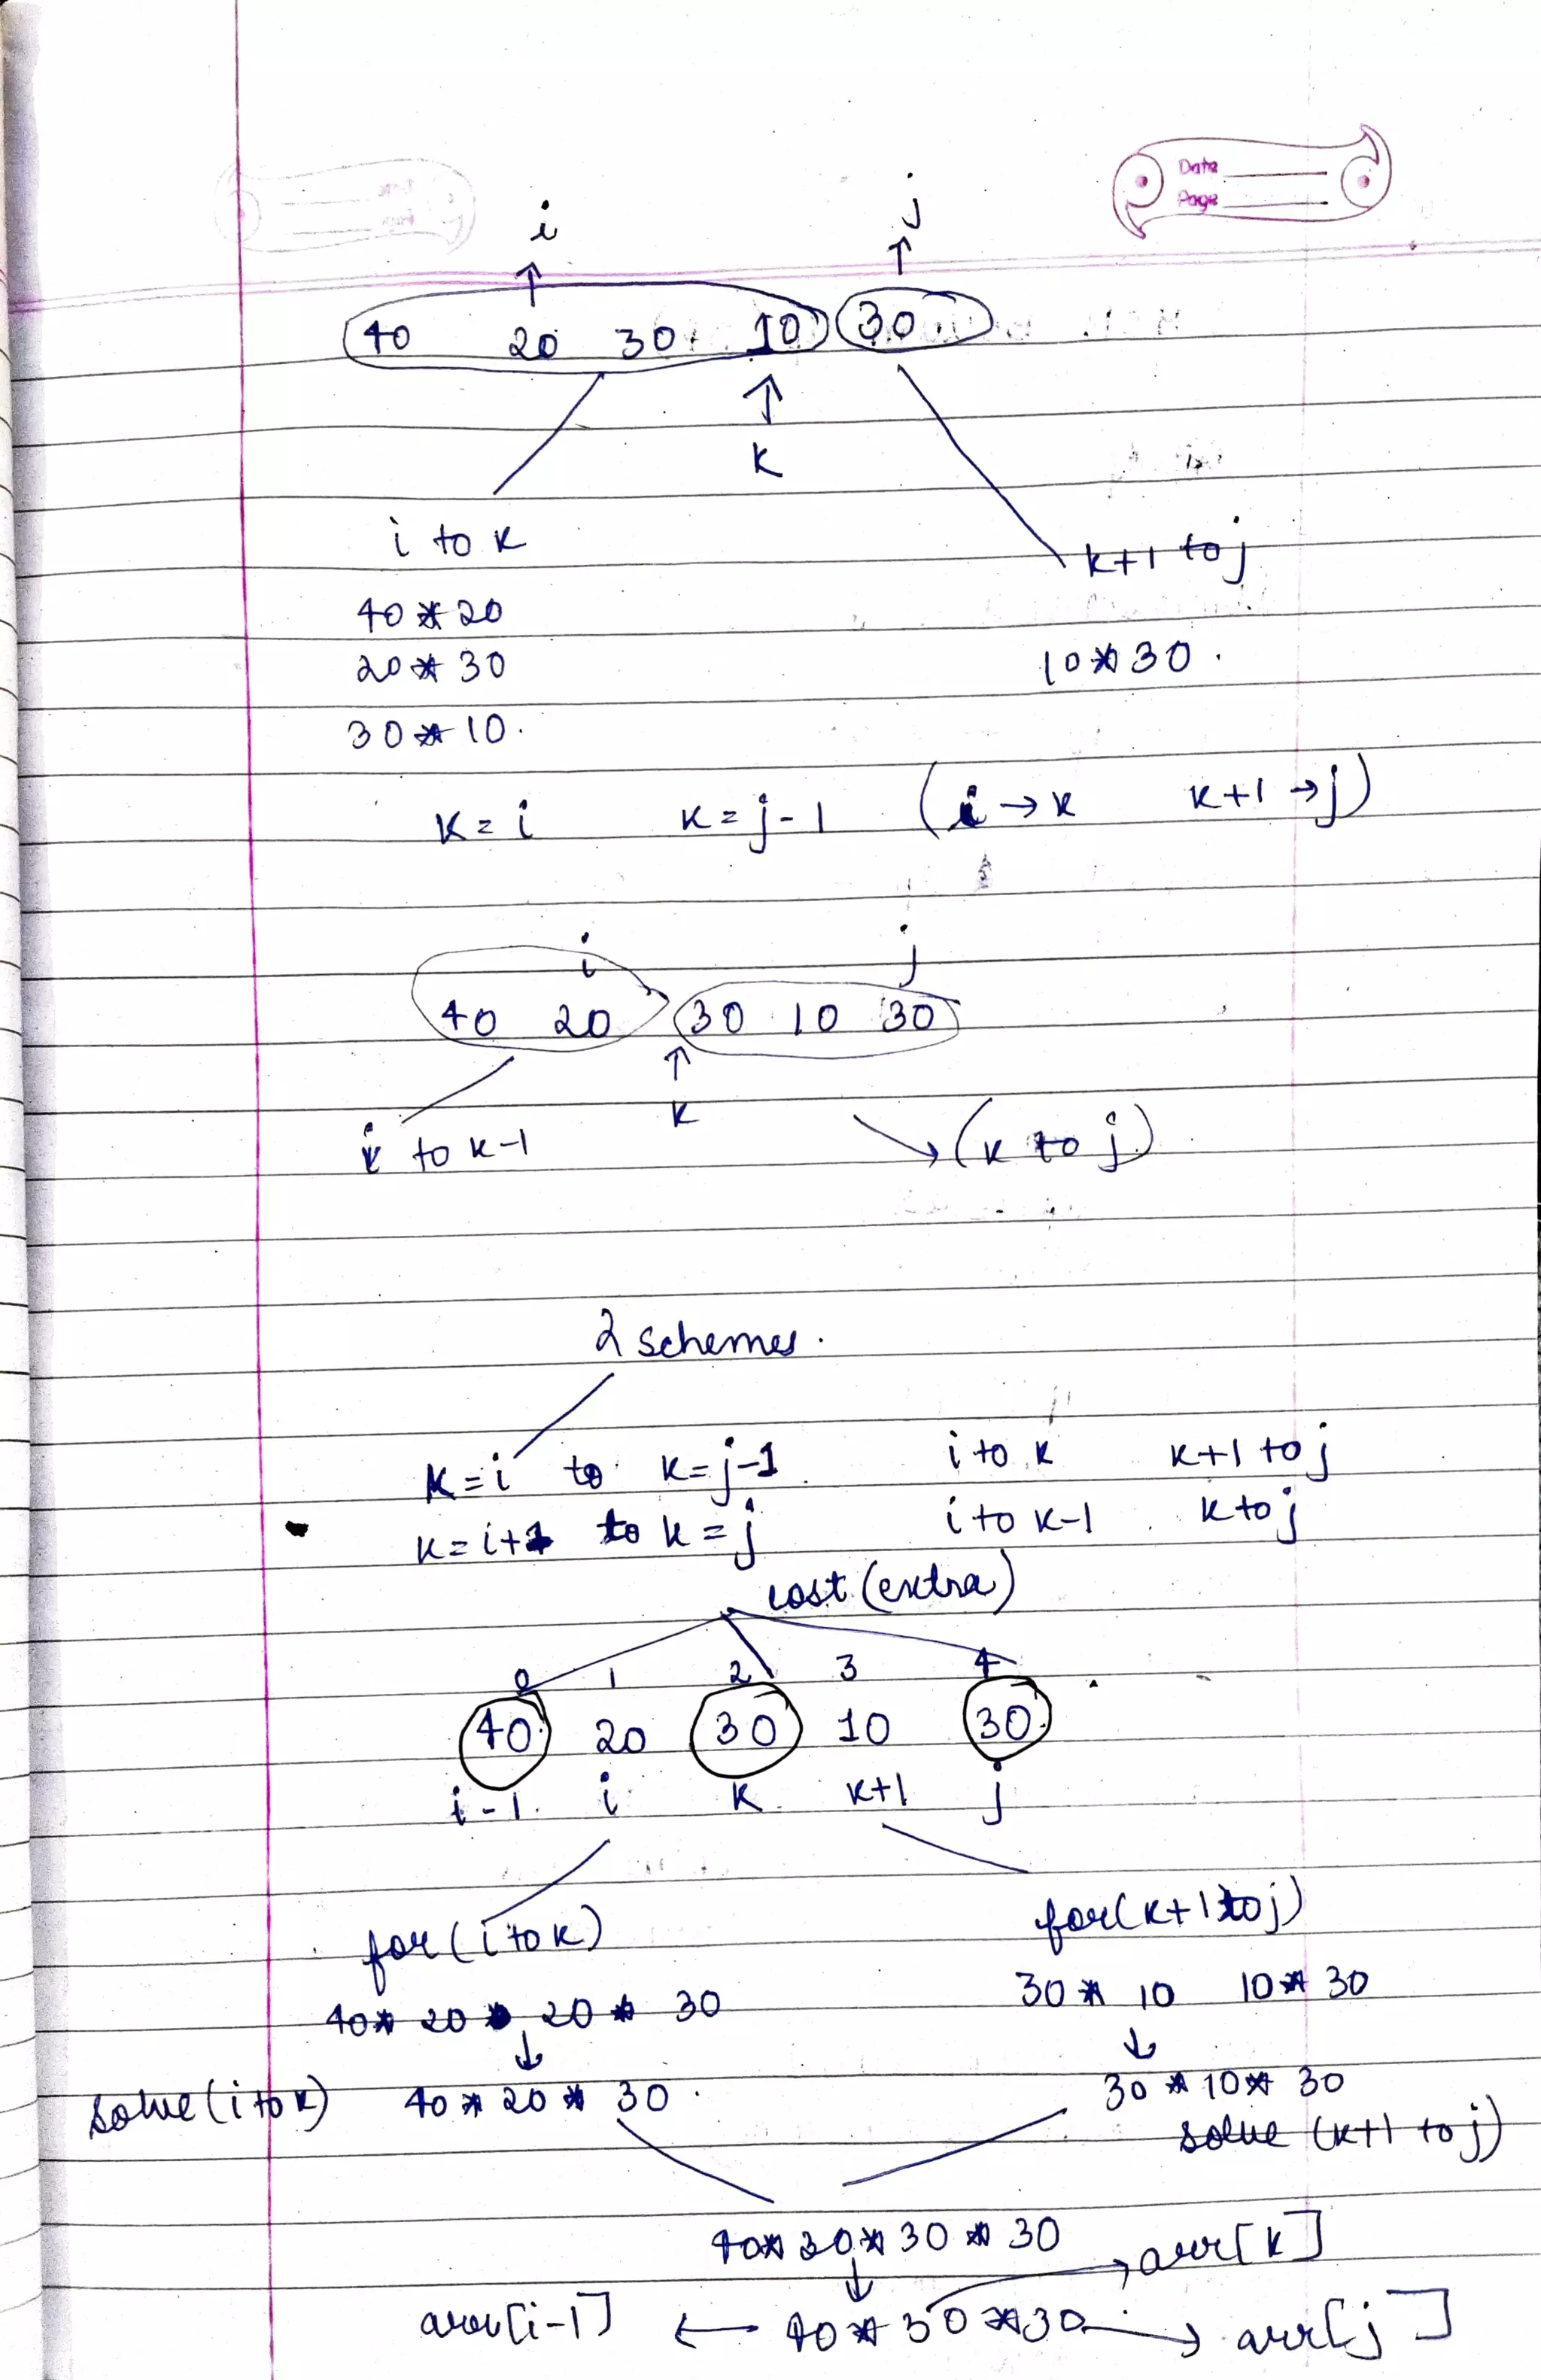 Date
Page
i j
40 20 30 10 30
k
i to k k+1 to j
40 * 20
20 * 30 10 * 30 .
30 * 10 .
k = i k = j - 1 ( i → k k+1 → j )
i j
40 20 30 10 30
k
i to k-1 (k to j)
2 schemes .
k = i to k = j-1 i to k k+1 to j
k = i+1 to k = j i to k-1 k to j
cost (extra)
0 1 2 3 4
40 20 30 10 30
i-1 i k k+1 j
for (i to k) for (k+1 to j)
40 * 20 20 * 30 30 * 10 10 * 30
solve (i to k) 40 * 20 * 30 . 30 * 10 * 30
solve (k+1 to j)
40 * 30 * 30 * 30 arr[k]
arr[i-1] ← 40 * 30 * 30 → arr[j]